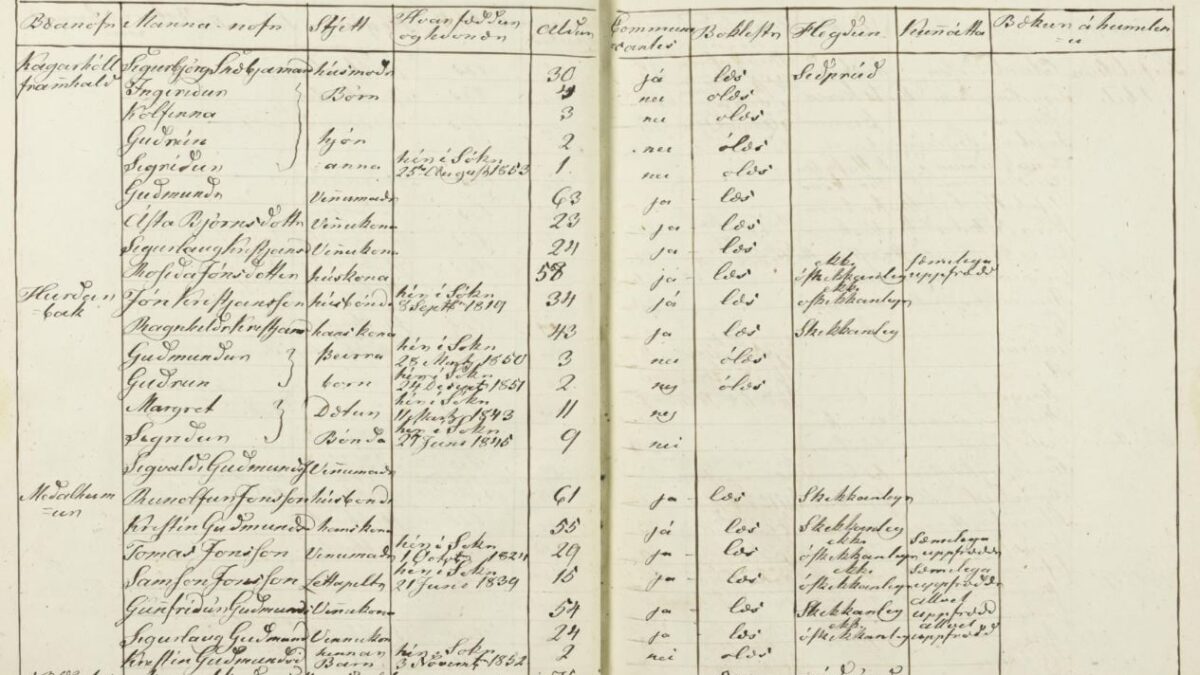 Bæanöfn Manna-nöfn Stjett Hvar fæddur og hvenær Aldur Communicantes Boklestr Hegdun Kunnátta
Kagarhóll framhald Sigurbjörg húsmoðr 30 já læs Siðprúð
Ingiriður Börn 4 nei ólæs
Kolfinna 3 nei ólæs
Guðrún hjón 2 nei ólæs
Sigríður anna hér í Sókn 25 August 1853 1. nei ólæs
Guðmundr Vinnumaðr 63 ja læs
Ásta Björnsdottir Vinnukona 23 ja læs
Sigurlaug Kristjans Vinnukona 24 ja læs
Jonsdotter húskona 58 ja læs ekki óskikkanleg sæmilega uppfrædd
Hurdarbak Jón Kristjansson húsbóndi hér í Sókn 8 Septb 1819 34 já læs ekki óskikkanlegr
Ragnhildr Kristjans hans kona 43 ja læs Skikkanleg
Guðmundur þeirra hér í Sókn 28 1850 3 nei ólæs
Gudrun born hér í Sókn 24 Decemb 1851 2 nei ólæs
Margret Dætur hér í Sókn 1843 11 nei
Sigriður Bónda hér í Sókn 27 Juni 1845 9 nei
Sigvaldi Guðmunds Vinnumaðr
Meðalheimur Runolfur Jonsson húsbondi 61 ja læs Skikkanlegr
Kristin Guðmunds hans kona 55 já læs Skikkanleg
Tomas Jonsson Vinnumaðr hér í Sókn 1 Octob 1824 29 ja læs ekki óskikkanlegr sæmilega uppfræddr
Samson Jonsson Lettapiltr hér í Sókn 21 Juni 1839 15 ja læs ekki óskikkanlegr sæmilega uppfræddr
Gunnfriður Guðmunds Vinnukona 54 ja læs Skikkanleg allvel uppfrædd
Sigurlaug Guðmunds Vinnukon 24 ja læs ekki óskikkanleg allvel uppfrædd
Kristin Guðmunds hennar Barn hér í Sókn 3 Novemb 1852 2 nei ólæs